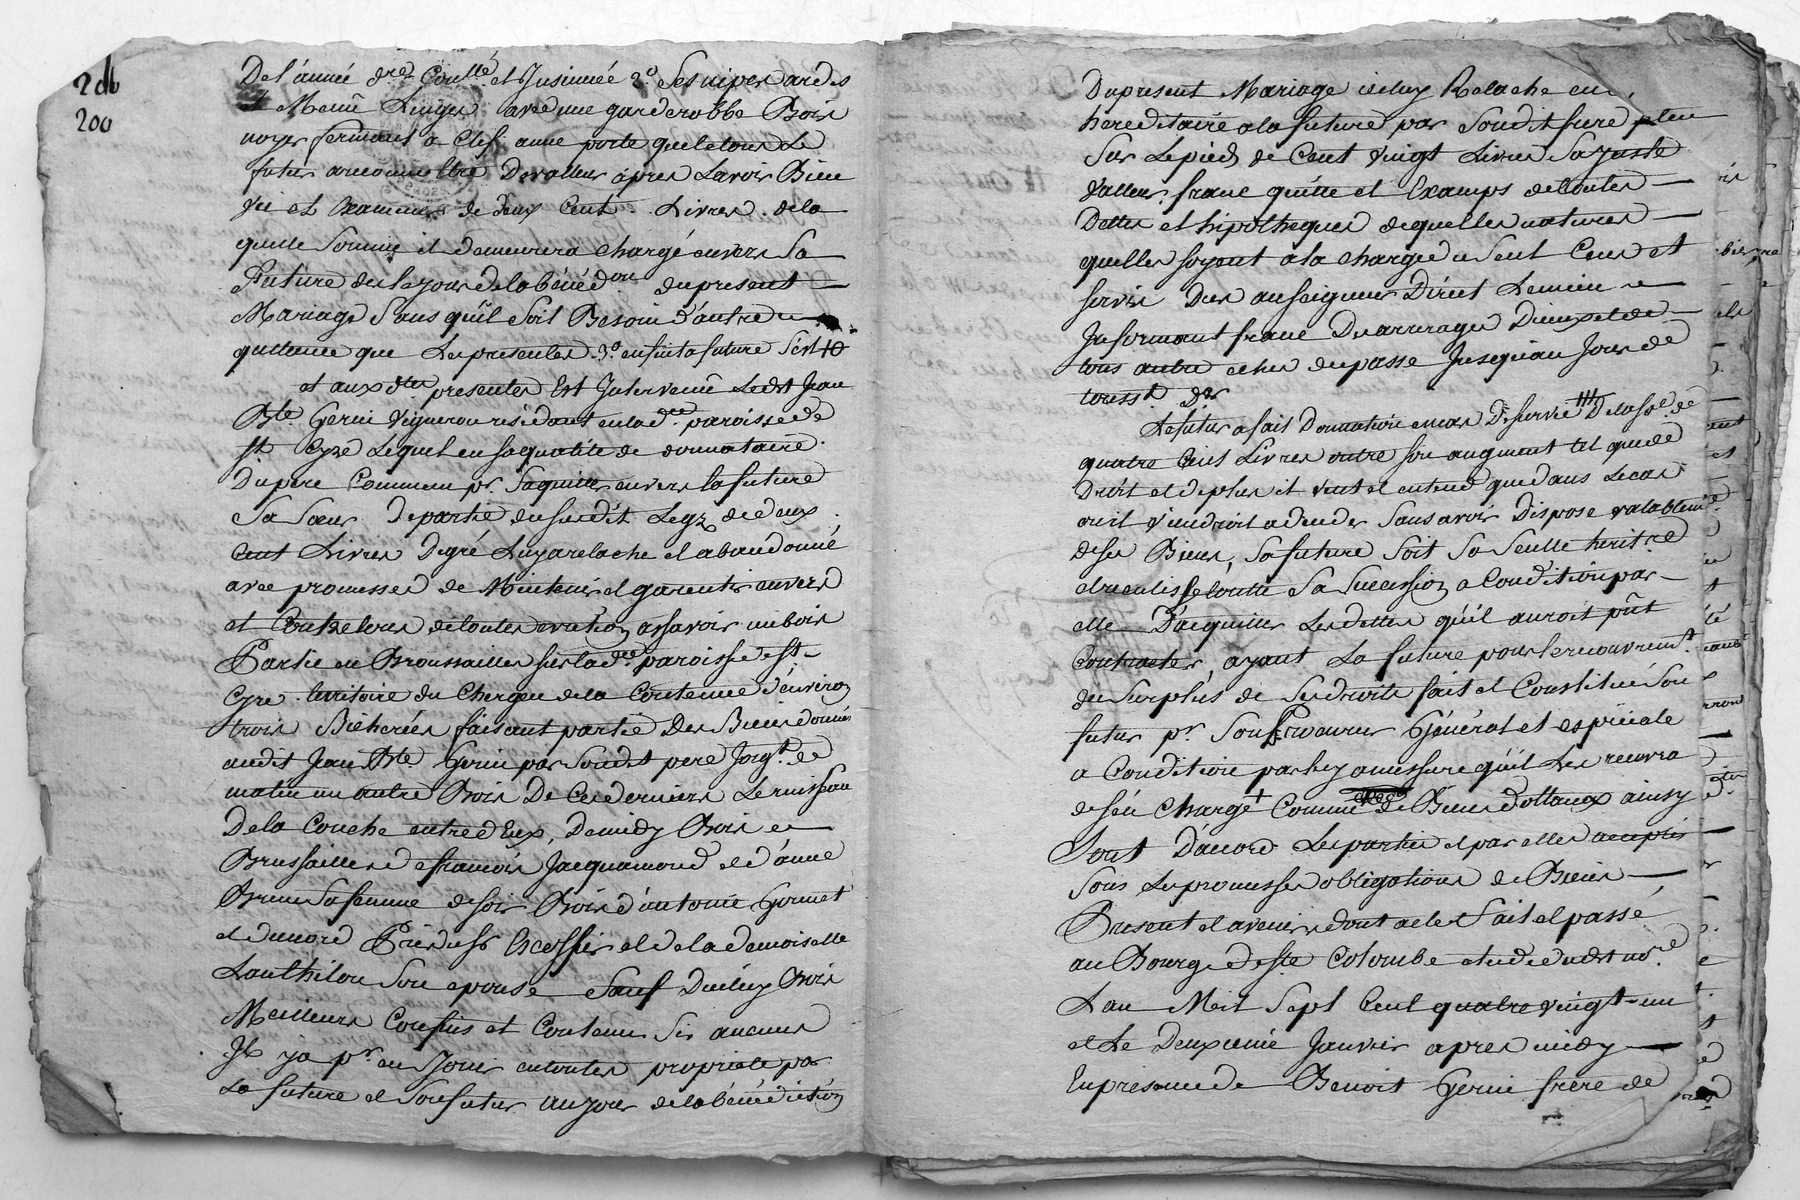 206
200
De l'année dre Coullé et Insinuée 2o Ses nipes ardes
& Menu Linge avec une garderobbe Bois
noyer fermant a Clef a une porte quele tous Le
futur a reconnu Etre De valleur apres Lavoir Bien
Vû et Examiner de deux Cent Livres de la
quelle Somme il demeurera chargé envers Sa
Future des le jour de la bénédon du present
Mariage Sans qu'il Soit Besoin d'autre
quittance que Les presentes 3o ensuit a future
et aux dtes presentes Est Intervenû Ledt Jean
Bte Gerin Vigneron résidant en la dte paroisse de
St Cyre Lequel en sa qualité de donnataire
Du pere Commun pr Saquitter envers la future
Sa Sœur De partie du susdit Legz de deux
Cent Livres De gré Luy a relaché et abandonné
avec promesses de Maintenir et garentir envers
et Contre tous de toutes eviction assavoir un bois
Partie en Broussailles sur la dte paroisse de St
Cyre territoire du Chergeu de la Contenue d'environ
trois Bicherées faisant partie Des Biens donnés
audit Jean Bte Gerin par Son dit pere Joigt de
matin un autre Bois De Ces derniers Le ruisseau
De la Couche entre d'Eux, De midy Bois et
Brussailles de francois Jacquamond et d'anne
Brun Sa femme de soir Bois d'antoine Gonnet
et du nord et de la demoiselle
Lanthilon Son epouse Sauf Dudit Bois
Meilleurs Confins et Contenue Si aucuns
Il y a pr en Jouir en toutes propriété par
La future et Son futur au jour de la bénédiction
Du present Mariage icelluy Relache en
hereditaire a la future par Son dit frere
Sur Le pied de Cent vingt Livres Sa juste
Valleur franc quitte et Examps de toutes
Dettes et hipotheques de quelles natures
quelles soyent a la charge du Seul Cens et
servis Dus au seigneur Direct Le mien
Informant franc Des arrerages D'iceux et de
tous autre du passé Jusqu'au Jour de
touss.t der
Le futur a fait Donnation en cas De survie De la so.e de
quatre Cents Livres outre son augment tel que de
Droit et de plus il veut et entend que dans Le cas
ou il Viendroit a deceder Sans avoir Dispose valablemt
de Ses Biens, Sa future Soit Sa Seulle heritre
et recueilisse toutte Sa Succession a Condition par
elle D'acquitter Les dettes qu'il auroit pût
Contracter, ayant La future pour le recouvremt
du Surplus de Ses droits fait et Constitué Son
futur pr Son Procureur Général et espéciale
a Condition par luy a messure qu'il Les recevra
de S'en Chargé + Comme de Biens dottaux ainsy
Sont D'accord Les parties et par elles accepté
Sous Les promesses obligations de Biens
Present et avenir dont acte Fait et passé
au Bourg de Ste Colombe etude du dit nore
L'an Mil Sept Cent quatre vingt un
et Le Deuxieme Janvier apres midy
En presence de Benoit Gerin frere de